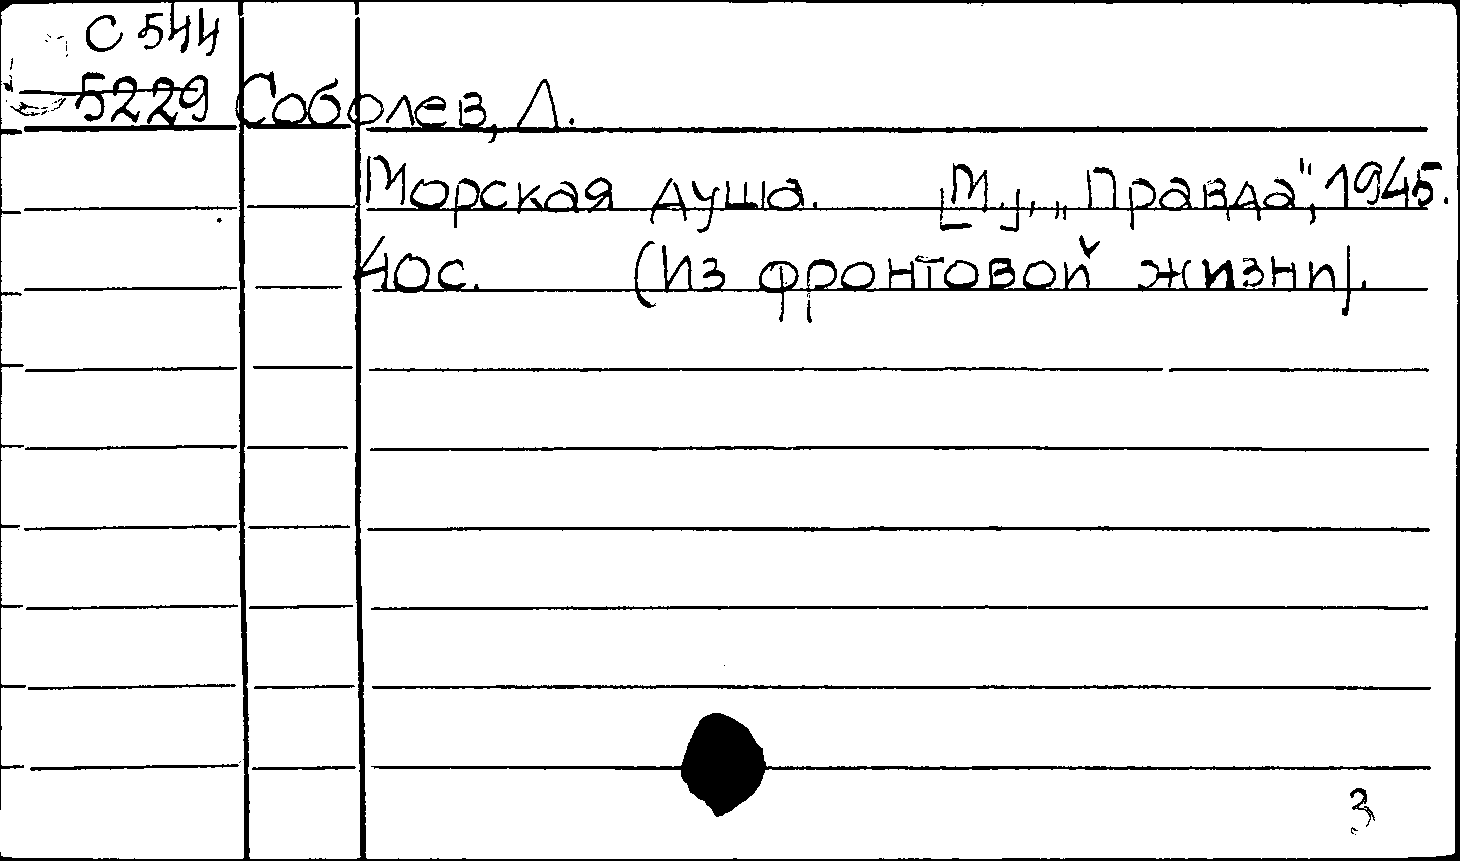 С 544
5229 Соболев, Л.
Морская душа. [М.], „Правда", 1945.
40с. (Из фронтовой жизни).
3